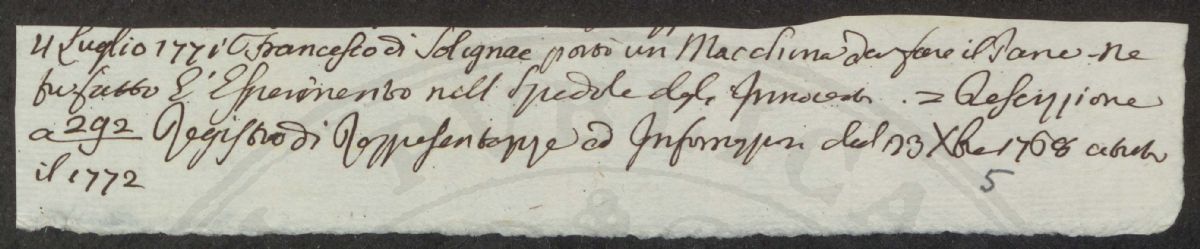 4 Luglio 1771 Francesco di Solignac portò un Macchina da fare il Pane. Ne
fu fatto l'Esperimento nello Spedale degl' Innocenti. = Descrizione
a 292 Registro di Rappresentanze ed Informazioni dal 23 Xbre 1768 a tutto
il 1772
5